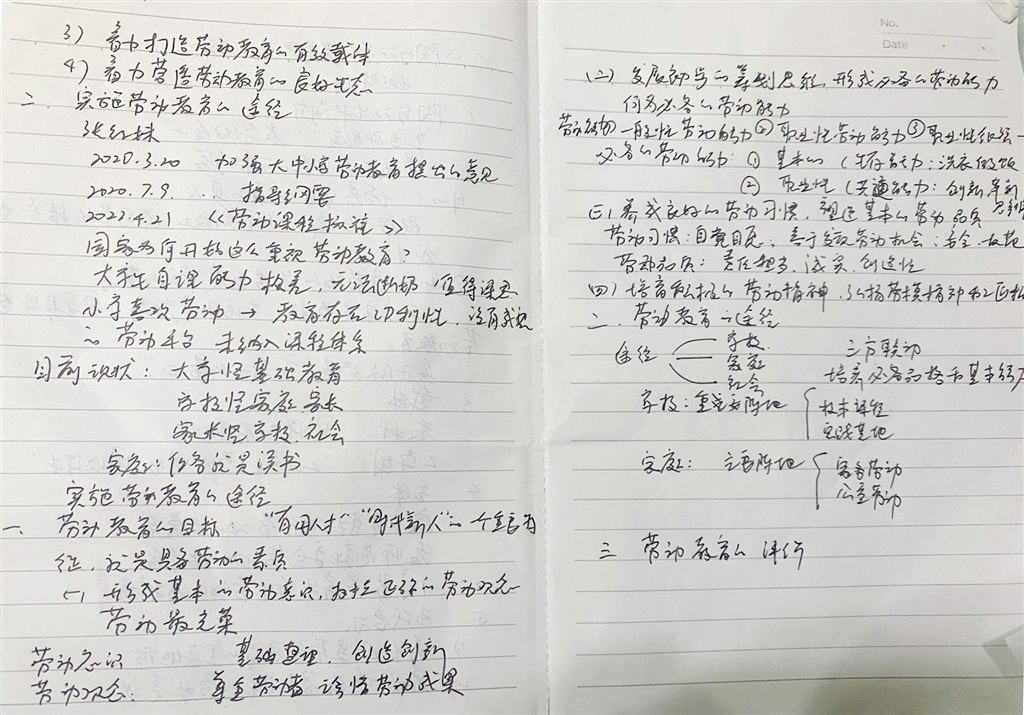 3) 着力打造劳动教育的有效载体
4) 着力营造劳动教育的良好生态
二. 实施劳动教育的途径
张红妹
2020.3.20 加强大中小学劳动教育提出的意见
2020.7.9. 指导纲要
2022.4.21 《劳动课程标准》
国家为何开始这么重视劳动教育?
大学生自理能力较差, 无法断奶 值得深思
小学喜欢劳动 → 教育存在功利性, 没有
的劳动平台 未纳入课程体系
目前现状: 大学怪基础教育
学校怪家庭家长
家长怪学校. 社会
家庭: 任务就是读书
实施劳动教育的途径
一. 劳动教育的目标 “有用人才”“时代新人”的一个重要
征, 就是具备劳动的素质
(一) 形成基本的劳动意识, 树立正确的劳动观念
劳动最光荣
劳动意识 基础真理. 创造创新
劳动观念: 尊重劳动者 珍惜劳动成果
No.
Date
(二) 发展初步的筹划思维, 形成必备的劳动能力
何为必备的劳动能力
一般性劳动能力 ② 职业性劳动能力 ③ 职业性
必备的劳动能力: ① 基本的 (生存能力: 洗衣做饭
② 职业性 (共通能力: 创新革新
(三) 养成良好的劳动习惯, 塑造基本的劳动品质
劳动习惯: 自觉自愿、善于发现劳动机会; 安全. 规范
劳动品质: 责任担当, 诚实, 创造性
(四) 培育积极的劳动精神, 弘扬劳模精神和工匠精
二. 劳动教育的途径
途径 学校. 家庭 社会 三方联动
培养必备品格和基本能力
学校: 重要阵地 校本课程 实践基地
家庭: 主要阵地 家务劳动 公益劳动
三 劳动教育的评价